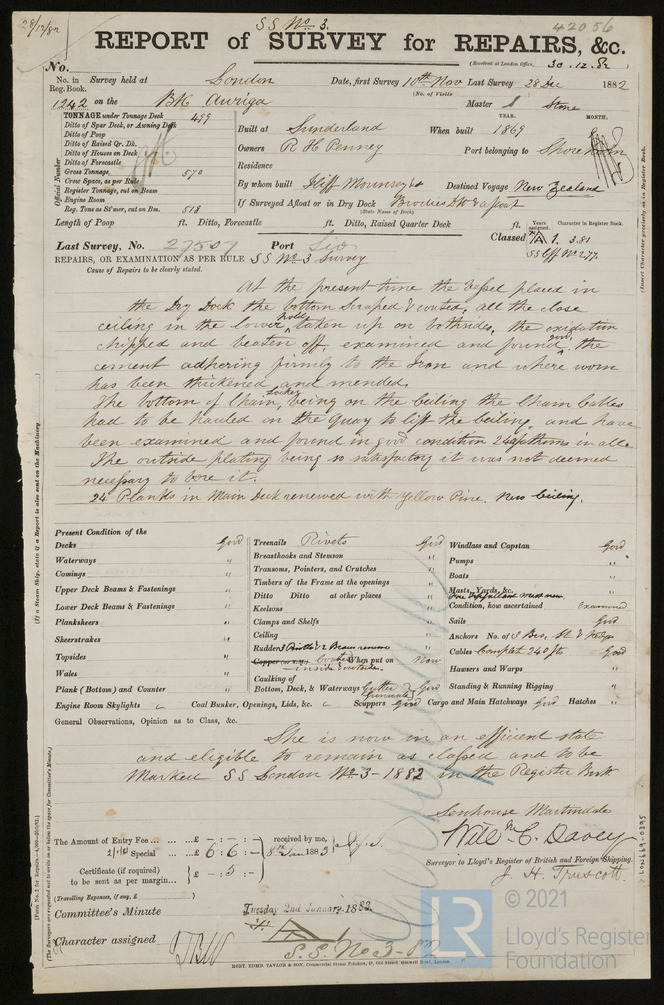 28/12/82
S S No 3.
42056
REPORT of SURVEY for REPAIRS, &c.
(Received at London Office, 30.12.82
No.
No. in Reg. Book. Survey held at London Date, first Survey 10th Nov Last Survey 28 Dec 1882
(No. of Visits
1242 on the Bk Auriga Master Stone
TONNAGE under Tonnage Deck 499
Ditto of Spar Deck, or Awning Deck
Ditto of Poop
Ditto of Raised Qr. Dk.
Ditto of Houses on Deck
Ditto of Forecastle
Gross Tonnage, 570
Crew Space, as per Rule
Register Tonnage, cut on Beam
Engine Room
Reg. Tons as St'mer, cut on Bm. 518
Official Number
YEAR. MONTH.
Built at Sunderland When built 1869
Owners R H Penney Port belonging to Shoreham
Residence
By whom built Iliff Mounsey & Co Destined Voyage New Zealand
If Surveyed Afloat or in Dry Dock Brodies D Dk & afloat
(State Name of Dock)
Length of Poop ft. Ditto, Forecastle ft. Ditto, Raised Quarter Deck ft.
Years assigned. Character in Register Book.
Classed A 1. 3.81
Last Survey, No. 27507 Port
REPAIRS, OR EXAMINATION AS PER RULE S S No 3 Survey
Cause of Repairs to be clearly stated.
At the present time the vessel placed in
the Dry Dock the bottom scraped & coated, all the close
ceiling in the lower hold taken up on both sides, the oxidation
chipped and beaten off, examined and found good, the
cement adhering firmly to the Iron and where worn
has been thickened and mended.
The bottom of Chain Locker being on the Ceiling the Cham Cables
had to be hauled on the quay to lift the beiling, and have
been examined and found in good condition 240 fathoms in all.
The outside plating being so satisfactory it was not deemed
necessary to bore it.
24 Planks in Main Deck renewed with yellow Pine. New Ceiling.
(If a Steam Ship, state if a Report is also sent on the Machinery.
(Insert Character precisely as in Register Book.
Present Condition of the
Decks Good
Waterways "
Comings "
Upper Deck Beams & Fastenings "
Lower Deck Beams & Fastenings "
Planksheers "
Sheerstrakes "
Topsides "
Wales "
Plank (Bottom) and Counter "
Treenails Rivets Good
Breasthooks and Stemson "
Transoms, Pointers, and Crutches "
Timbers of the Frame at the openings "
Ditto Ditto at other places "
Keelsons "
Clamps and Shelfs "
Ceiling "
Rudder
Copper (or Y.M.) Coated When put on Now
inside & outside.
Caulking of
Bottom, Deck, & Waterways Good
Windlass and Capstan Good
Pumps "
Boats "
Masts, Yards, &c.
Condition, how ascertained Examined
Sails Good
Anchors No. of 3 Brs, St & Kedge
Cables Complete 240 fs Good
Hawsers and Warps "
Standing & Running Rigging "
Engine Room Skylights Coal Bunker, Openings, Lids, &c. Scuppers Good Cargo and Main Hatchways Good Hatches "
General Observations, Opinion as to Class, &c.
She is now in an efficient state
and eligible to remain as classed and to be
Marked S S London No 3-1882 in the Register Book
Senhouse Martindale
Will M C Davey
Surveyor to Lloyd's Register of British and Foreign Shipping.
J. H. Truscott
The Amount of Entry Fee ... ... £ - : - : -
Special ... ... £ 6 : 6 : -
Certificate (if required) to be sent as per margin... £ - : 5 : -
received by me,
8th Jan 1883
(Travelling Expenses, if any, £
Committee's Minute Tuesday 2nd January, 1882.
Character assigned
S.S. No 3-82
ROBT. EDMD. TAYLOR & SON, Commercial Steam Printers, 19, Old Street, Goswell Road, London.
(The Surveyors are requested not to write on or below the space for Committee's Minute.)
LON669-0395
© 2021
LR
Lloyd's Register
Foundation